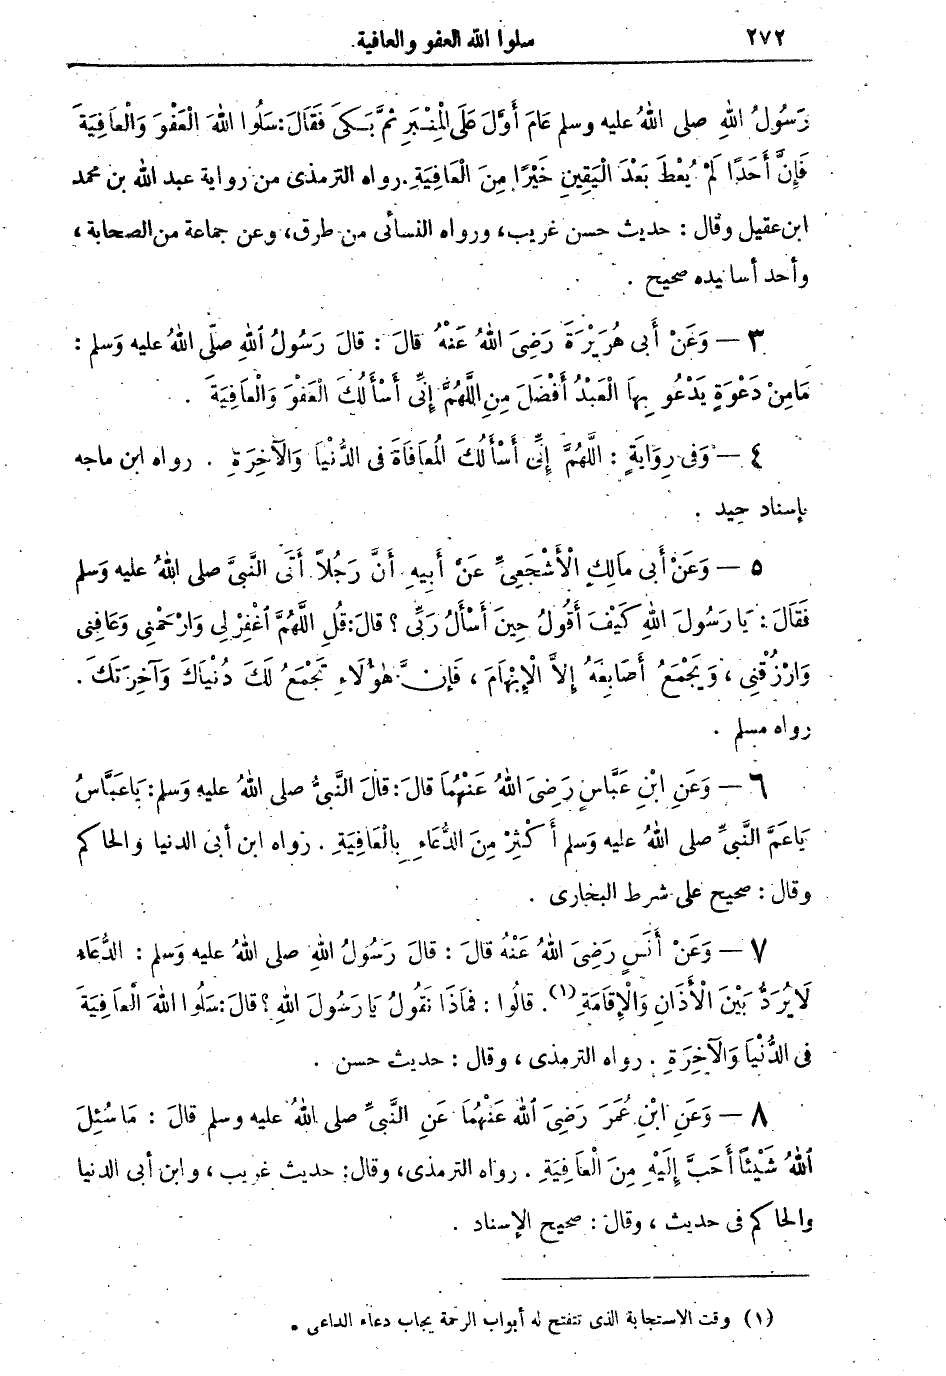 ٢٧٢ سلوا الله العفو والعافية.
رَسُولُ اللهِ صلى اللهُ عليه وسلم عَامَ أَوَّلَ عَلَى الْمِنْبَرِ ثُمَّ بَكَى فَقَالَ: سَلُوا اللهَ الْعَفْوَ وَالْعَافِيَةَ
فَإِنَّ أَحَدًا لَمْ يُعْطَ بَعْدَ الْيَقِينِ خَيْرًا مِنَ الْعَافِيَةِ. رواه الترمذى من رواية عبد الله بن محمد
ابن عقيل وقال: حديث حسن غريب، ورواه النسائى من طرق، وعن جماعة من الصحابة،
وأحد أسانيده صحيح.
٣ — وَعَنْ أَبِى هُرَيْرَةَ رَضِىَ اللهُ عَنْهُ قالَ: قالَ رَسُولُ اللهِ صلّى اللهُ عليه وَسلم:
مَامِنْ دَعْوَةٍ يَدْعُو بِهَا الْعَبْدُ أَفْضَلَ مِنِ اللَّهُمَّ إِنِّى أَسْأَلُكَ الْعَفْوَ وَالْعَافِيَةَ.
٤ — وَفِى رِوَايَةٍ: اللَّهُمَّ إِنِّى أَسْأَلُكَ الْمُعَافَاةَ فى الدُّنْيَا وَالآخِرَةِ. رواه ابن ماجه
بإسناد جيد.
٥ — وَعَنْ أَبى مَالِكٍ الْأَشْجَعِىِّ عَنْ أَبِيهِ أَنَّ رَجُلاً أَتَى النَّبِىَّ صلى اللهُ عليه وَسلم
فَقَالَ: يَا رَسُولَ اللهِ كَيْفَ أَقُولُ حِينَ أَسْأَلُ رَبِّى؟ قالَ: قُلِ اللَّهُمَّ اغْفِرْ لِى وَارْحَمْنِى وَعَافِنِى
وَارْزُقْنِى، وَيَجْمَعُ أَصَابِعَهُ إِلاَّ الْإِبْهَامَ، فَإِنَّ هٰؤُلَاءِ تَجْمَعُ لَكَ دُنْيَاكَ وَآخِرَتَكَ.
رواه مسلم.
٦ — وَعَنِ ابْنِ عَبَّاسٍ رَضِىَ اللهُ عَنْهُمَا قالَ: قالَ النَّبِىُّ صلى اللهُ عليه وَسلم: يَاعَبَّاسُ
يَاعَمَّ النَّبِىِّ صلى اللهُ عليه وَسلم أَكْثِرْ مِنَ الدُّعَاءِ بِالْعَافِيَةِ. رواه ابن أبى الدنيا والحاكم
وقال: صحيح على شرط البخارى.
٧ — وَعَنْ أَنَسٍ رَضِىَ اللهُ عَنْهُ قالَ: قالَ رَسُولُ اللهِ صلى اللهُ عليه وَسلم: الدُّعَاءُ
لَا يُرَدُّ بَيْنَ الْأَذَانِ وَالْإِقَامَةِ(١). قالُوا: فَمَاذَا نَقُولُ يَا رَسُولَ اللهِ؟ قالَ: سَلُوا اللهَ الْعَافِيَةَ
فى الدُّنْيَا وَالآخِرَةِ. رواه الترمذى، وقال: حديث حسن.
٨ — وَعَنِ ابْنِ عُمَرَ رَضِىَ اللهُ عَنْهُمَا عَنِ النَّبِىِّ صلى اللهُ عليه وسلم قالَ: مَا سُئِلَ
اللهُ شَيْئًا أَحَبَّ إِلَيْهِ مِنَ الْعَافِيَةِ. رواه الترمذى، وقال: حديث غريب، وابن أبى الدنيا
والحاكم فى حديث، وقال: صحيح الإسناد.
(١) وقت الاستجابة الذى تتفتح له أبواب الرحمة يجاب دعاء الداعى.